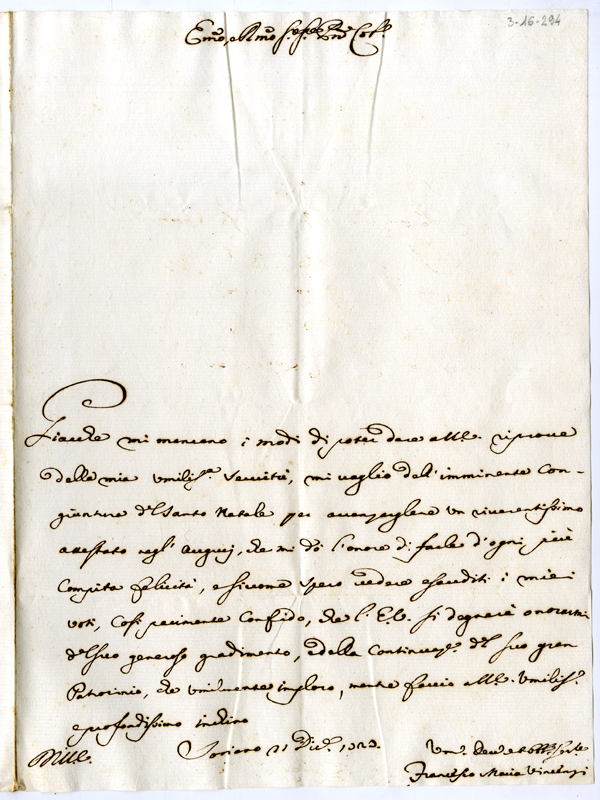 3-16-294
Emo, e Rmo Sig.re Sig.re Pne Col.mo
Giacche mi mancano i modi di poter dare all'E. riprove
della mia umiliss.a servitù, mi vaglio dell'imminente con-
giuntura del Santo Natale per avanzarglene un riverentissimo
attestato negl'Augurj, che mi dò l'onore di farle d'ogni più
compita felicità, e siccome spero vedere esauditi i miei
voti, così parimente confido, che l'E.V. si degnerà onorarmi
del suo generoso gradimento, e della continuaz.e del suo gran
Patrocinio, che umilmente imploro, mentre faccio all'E.V. umiliss.o
e profondissimo inchino
Soriano 21 Dic.e
Um.o Dev.o et Obb.o Serv.e
Francesco Maria Vincenzi